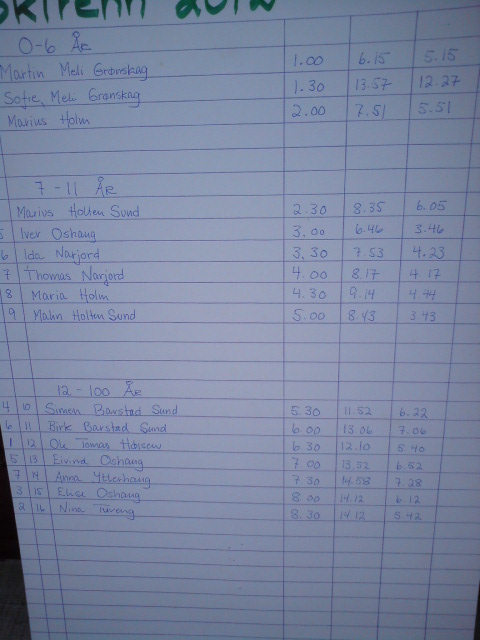 skirenn 2012
0-6 År
Martin Meli Grønskag 1.00 6.15 5.15
Sofie, Meli Grønskag 1.30 13.57 12.27
Marius Holm 2.00 7.51 5.51
7-11 År
Marius Holten Sund 2.30 8.35 6.05
5 Iver Oshaug 3.00 6.46 3.46
6 Ida Narjord 3,30 7.53 4.23
7 Thomas Narjord 4.00 8.17 4.17
8 Maria Holm 4.30 9.14 4.44
9 Malin Holten Sund 5.00 8.43 3.43
12-100 År
4 10 Simen Barstad Sund 5.30 11.52 6.22
6 11 Birk Barstad Sund 6.00 13.06 7.06
1 12 Ole Tomas 6.30 12.10 5.40
5 13 Eivind Oshaug 7.00 13.52 6.52
7 14 Anna Ytterhaug 7.30 14.58 7.28
3 15 Elise Oshaug 8.00 14.12 6.12
2 16 Nina 8.30 14.12 5.42